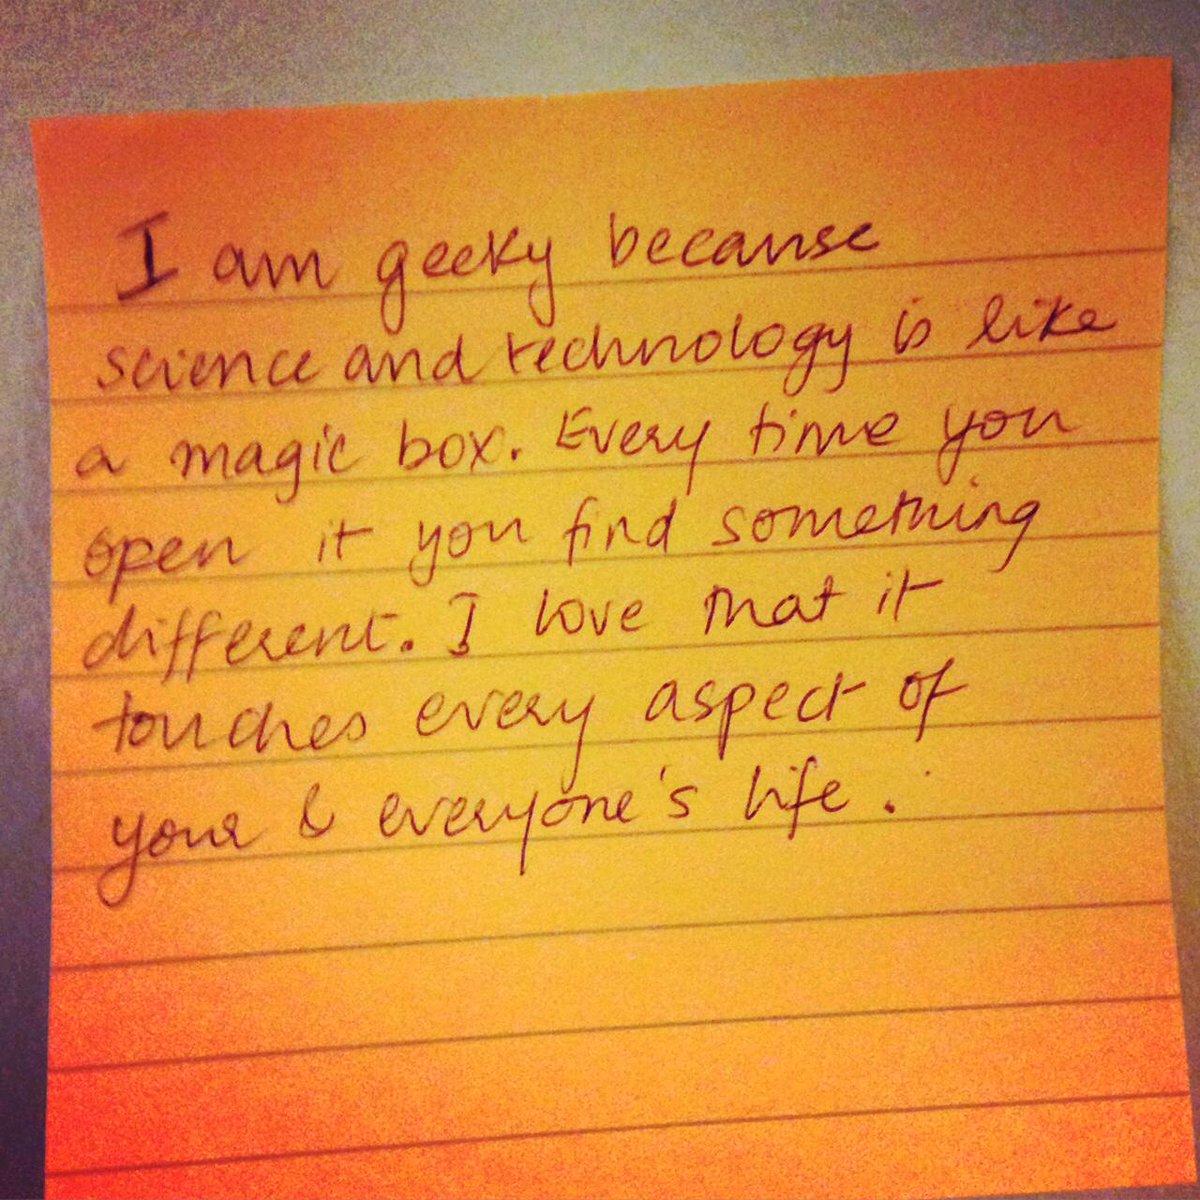 I am geeky because
science and technology is like
a magic box. Every time you
open it you find something
different. I love that it
touches every aspect of
your & everyone's life.